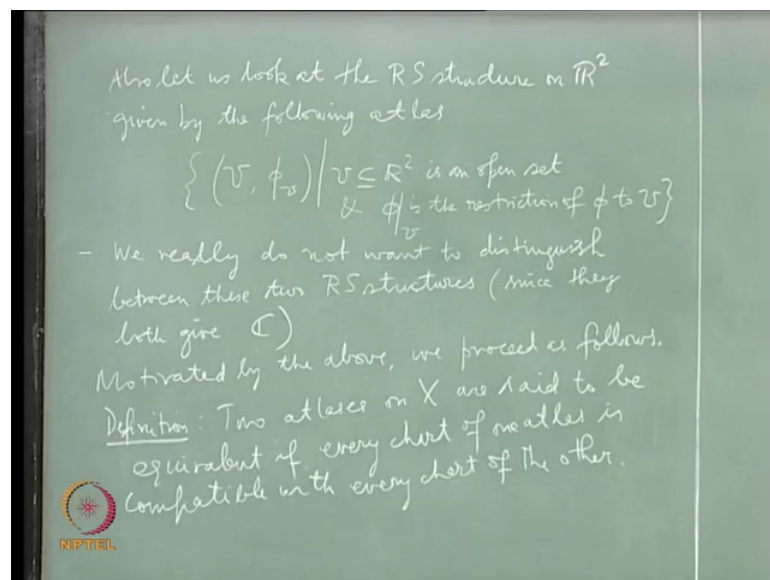 Also let us look at the RS structure on ℝ²
given by the following atlas
{ (V, ϕ_V) | V ⊆ ℝ² is an open set
& ϕ|_V is the restriction of ϕ to V }
- We really do not want to distinguish
between these two RS structures (since they
both give ℂ)
Motivated by the above, we proceed as follows.
Definition: Two atlases on X are said to be
equivalent if every chart of one atlas is
compatible with every chart of the other.
NPTEL